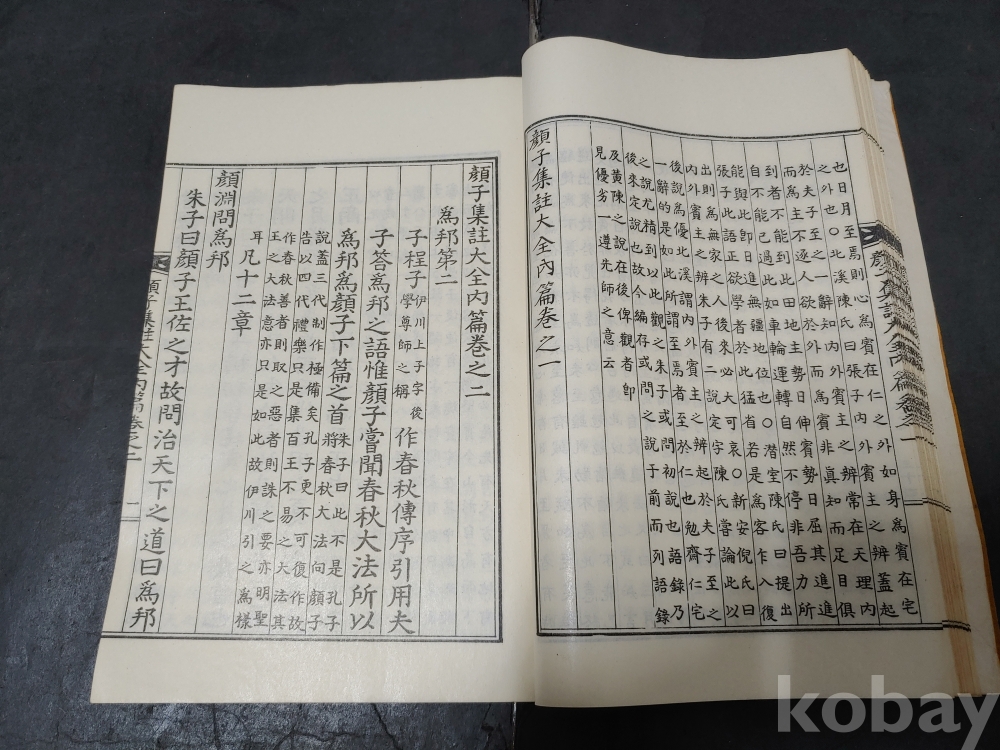 也日月至焉則心爲賓在仁之外如身爲賓在宅
之外也○北溪陳氏曰張子內外賓主之辨蓋起
於夫子至之一辭知內外賓主之辨常在天理內
而爲主不逐人欲於外而爲賓非真知而足目俱
到者不能到此田地主勢日伸賓勢日屈其進進
自不能已過此如車輪運轉自然不停非吾力所
能與此即日進無疆地位也○潛室陳氏曰提出
張子此語正欲學者於此猛省若是爲客乍入復
出則爲無家之人後來必大可哀○新安倪氏曰
內外賓主之辨朱子有二說定字陳氏嘗論此以
後說爲優北溪謂內外賓主之辨起於夫子至之
一辭的是如此所謂至焉者至於仁也勉齋仁宅
之說尤精到以此觀之朱子或問初說也語錄乃
後來定說也故今編存或問之說于前而列語錄
及黃陳之說在後俾觀者即
見優劣一遵先師之意云
顔子集註大全內篇卷之一
顔子集註大全內篇卷之二
爲邦第二
子程子伊川上子字後學尊師之稱作春秋傳序引用夫
子答爲邦之語惟顔子嘗聞春秋大法所以
爲邦爲顔子下篇之首朱子曰此不是孔子將春秋大法向顔子
說蓋三代制作極備矣孔子更不可復作故
告以四代禮樂只是集百王不易之大法其
作春秋善者則取之惡者則誅之要亦明聖
王之大法意亦只是如此故伊川引之爲樣
耳凡十二章
顔淵問爲邦
朱子曰顔子王佐之才故問治天下之道曰爲邦
顔子集註大全內篇卷之二
一
kobay